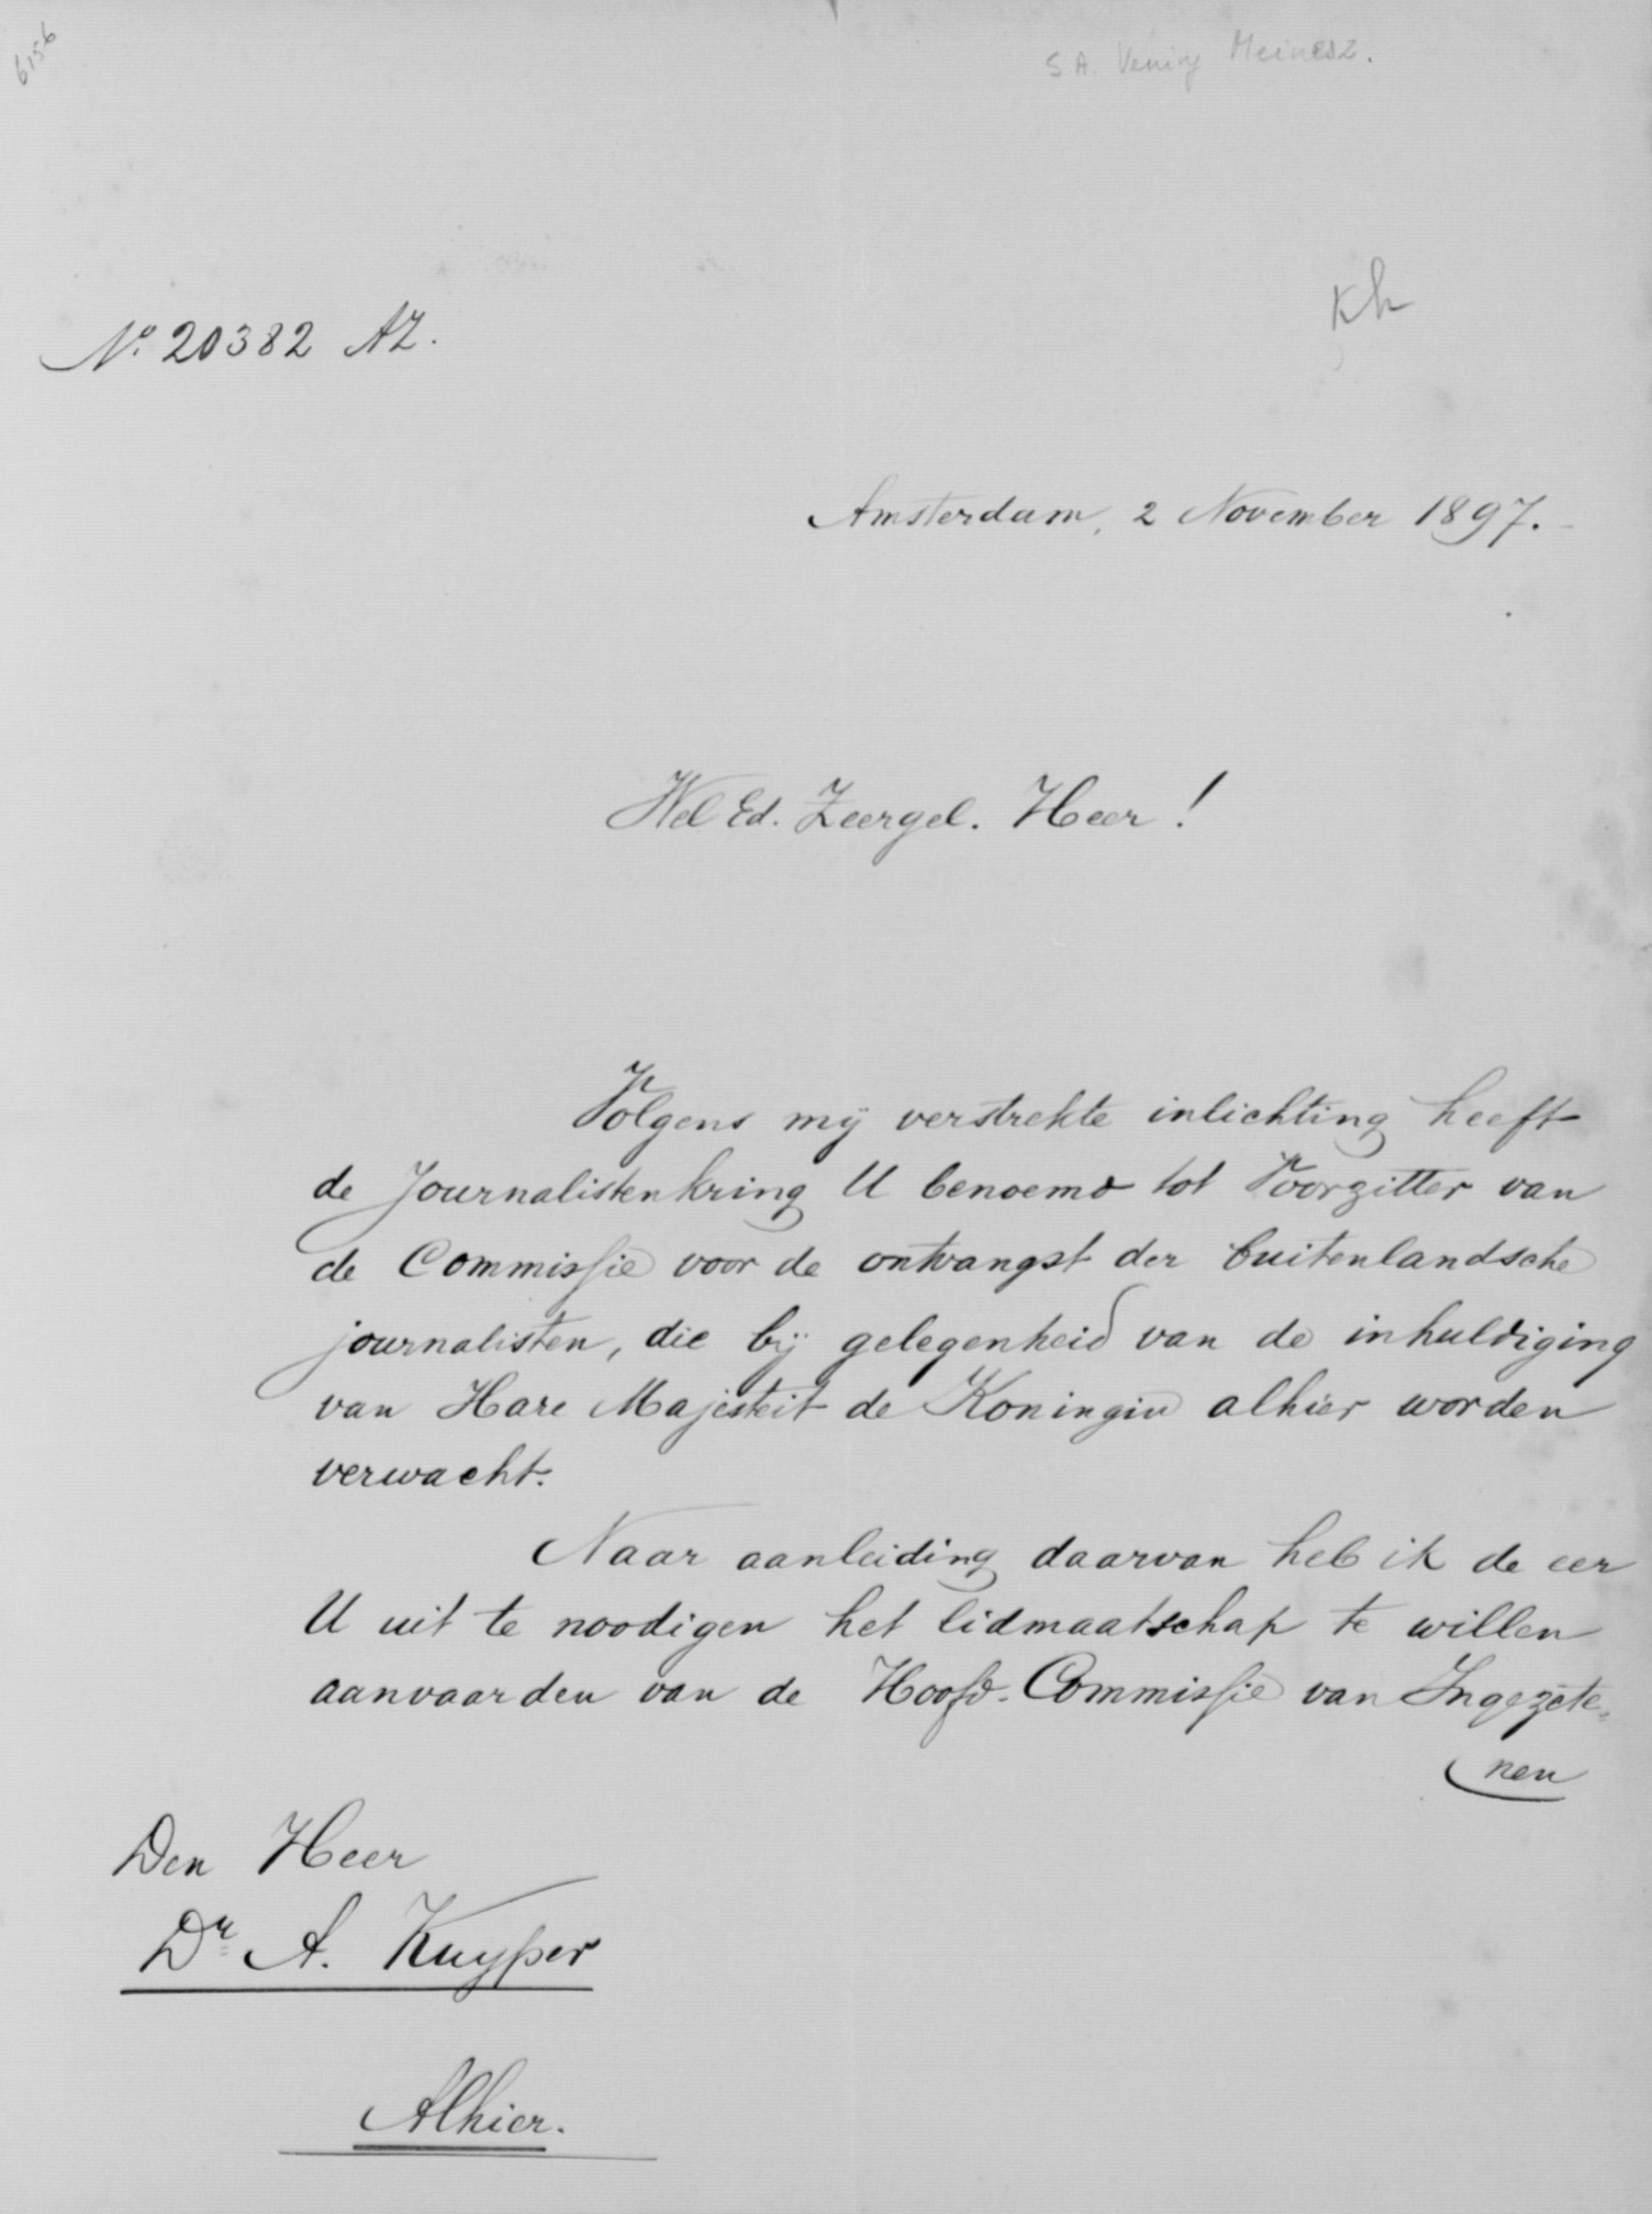 6156
S A. Vening Meinesz.
Kh
No. 20382 AZ.
Amsterdam, 2 November 1897.
Wel Ed. Zeergel. Heer!
Volgens mij verstrekte inlichting heeft
de Journalistenkring U benoemd tot Voorzitter van
de Commissie voor de ontvangst der buitenlandsche
journalisten, die bij gelegenheid van de inhuldiging
van Hare Majesteit de Koningin alhier worden
verwacht.
Naar aanleiding daarvan heb ik de eer
U uit te noodigen het lidmaatschap te willen
aanvaarden van de Hoofd-Commissie van Ingezete=
nen
Den Heer
Dr A. Kuyper
Alhier.